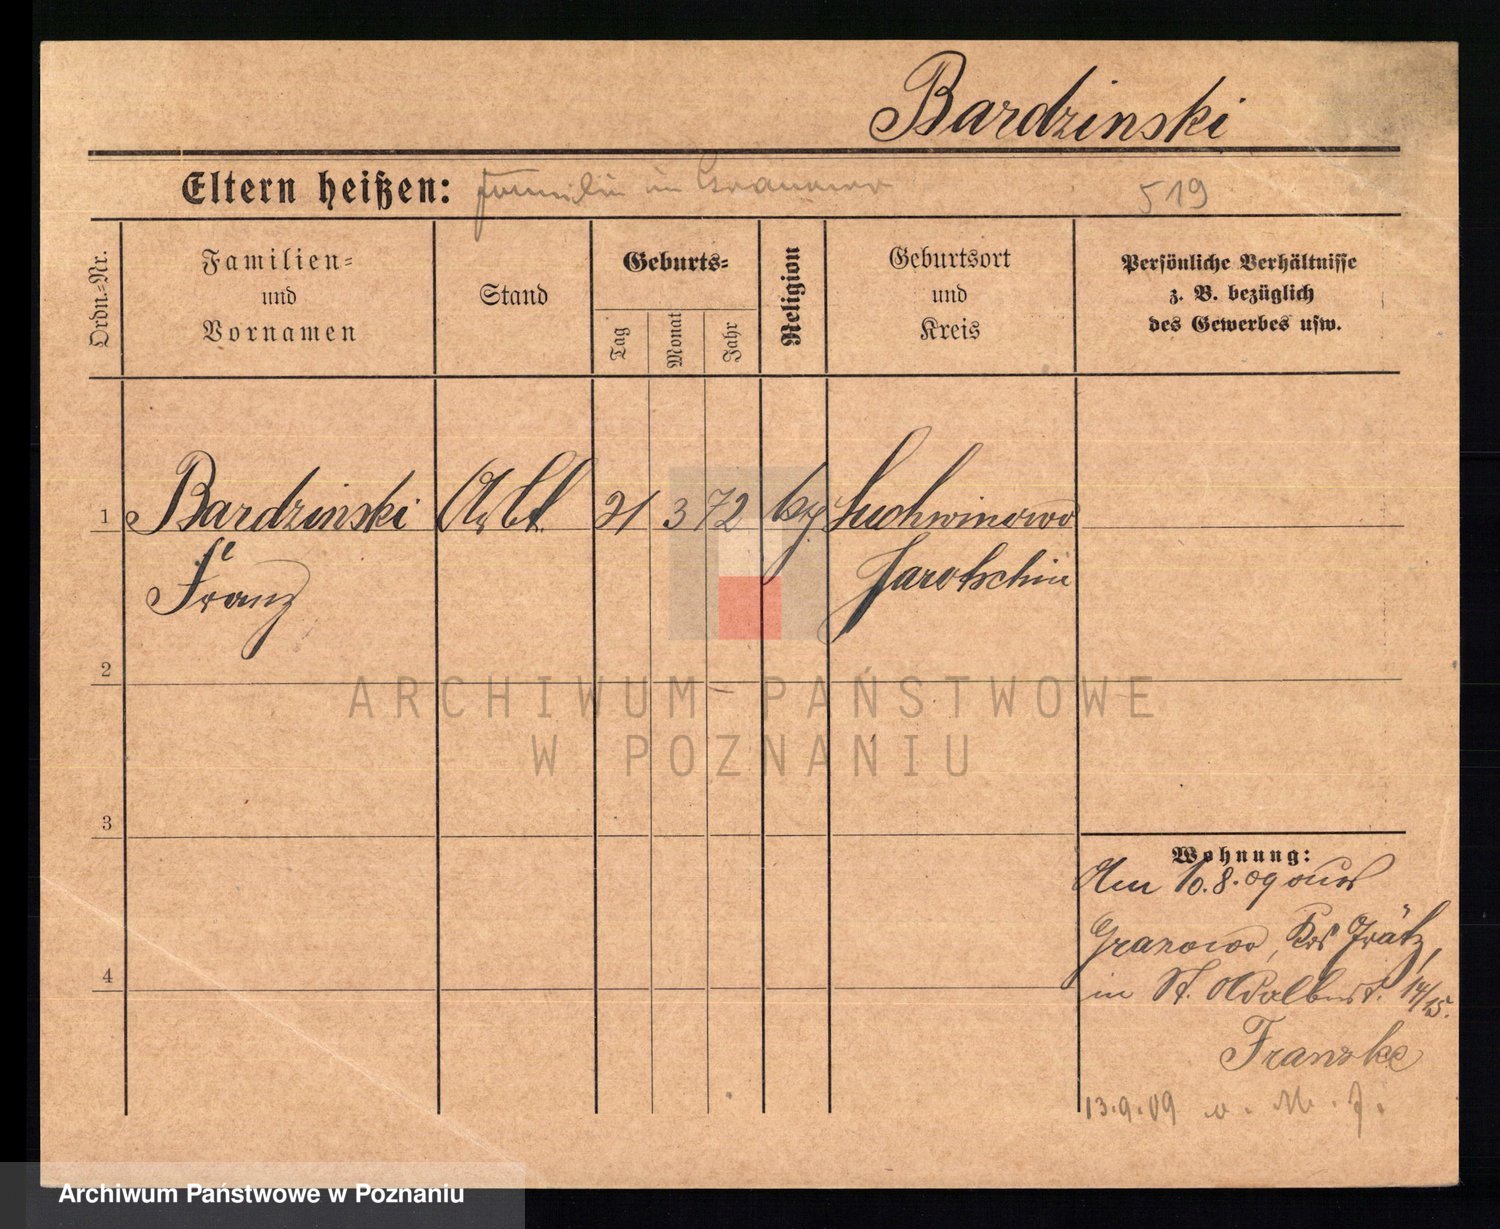 Bardzinski
Eltern heißen: Familie in Granowo 519
Ordn.-Nr.
Familien-
und
Vornamen
Stand
Geburts-
Tag
Monat
Jahr
Religion
Geburtsort
und
Kreis
Persönliche Verhältnisse
z. B. bezüglich
des Gewerbes usw.
1 Bardzinski Arbt. 21 3 72 Suchwinowo
Franz Jarotschin
2
3
4
Wohnung:
Am 10.8.09 aus
Granowo, Krs Grätz,
in St. Adalbert. 14/15.
Franske
13.9.09 v. M. J.
ARCHIWUM PAŃSTWOWE
W POZNANIU
Archiwum Państwowe w Poznaniu